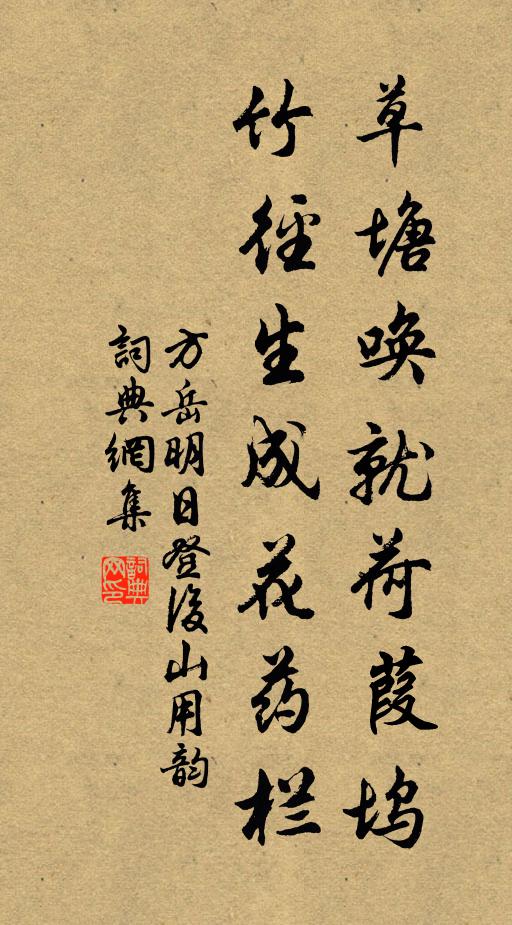 草塘唤就荷葭坞
竹徑生成花药栏
方岳明日登後山用韵
詞典網集
詞典網印